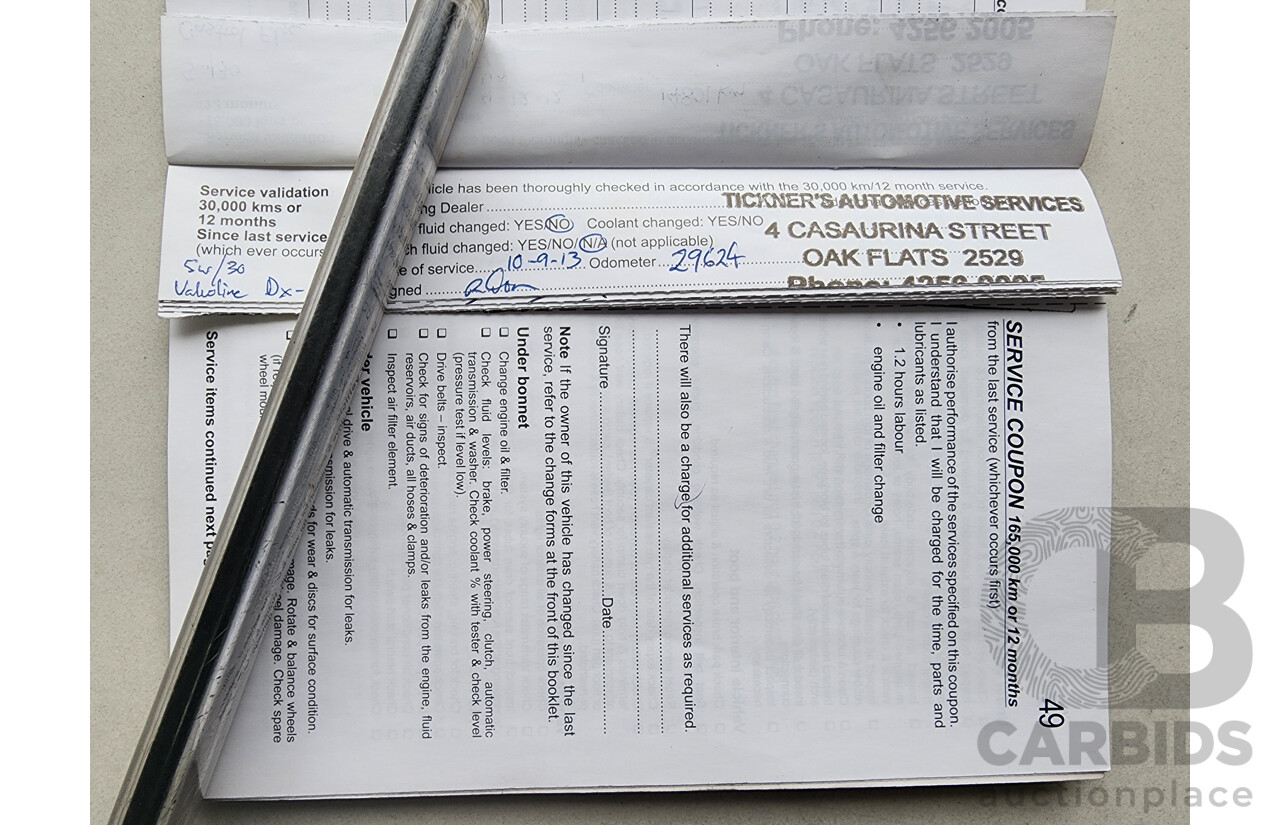 Service validation
30,000 kms or
12 months
Since last service
(which ever occurs
5w/30
Valvoline Dx-
icle has been thoroughly checked in accordance with the 30,000 km/12 month service.
ng Dealer
fluid changed: YES/NO Coolant changed: YES/NO
h fluid changed: YES/NO/N/A (not applicable)
e of service 10-9-13 Odometer 29624
gned
TICKNER'S AUTOMOTIVE SERVICES
4 CASAURINA STREET
OAK FLATS 2529
Phone: 4256 2005
49
SERVICE COUPON 165,000 km or 12 months
from the last service (whichever occurs first)
I authorise performance of the services specified on this coupon.
I understand that I will be charged for the time, parts and
lubricants as listed.
• 1.2 hours labour
• engine oil and filter change
There will also be a charge for additional services as required.
Signature Date
Note If the owner of this vehicle has changed since the last
service, refer to the change forms at the front of this booklet.
Under bonnet
❑ Change engine oil & filter.
❑ Check fluid levels: brake, power steering, clutch, automatic
transmission & washer. Check coolant % with tester & check level
(pressure test if level low).
❑ Drive belts – inspect.
❑ Check for signs of deterioration and/or leaks from the engine, fluid
reservoirs, air ducts, all hoses & clamps.
❑ Inspect air filter element.
er vehicle
drive & automatic transmission for leaks.
mission for leaks.
s for wear & discs for surface condition.
age. Rotate & balance wheels
el damage. Check spare
wheel
Service items continued next pag
CARBIDS
auctionplace